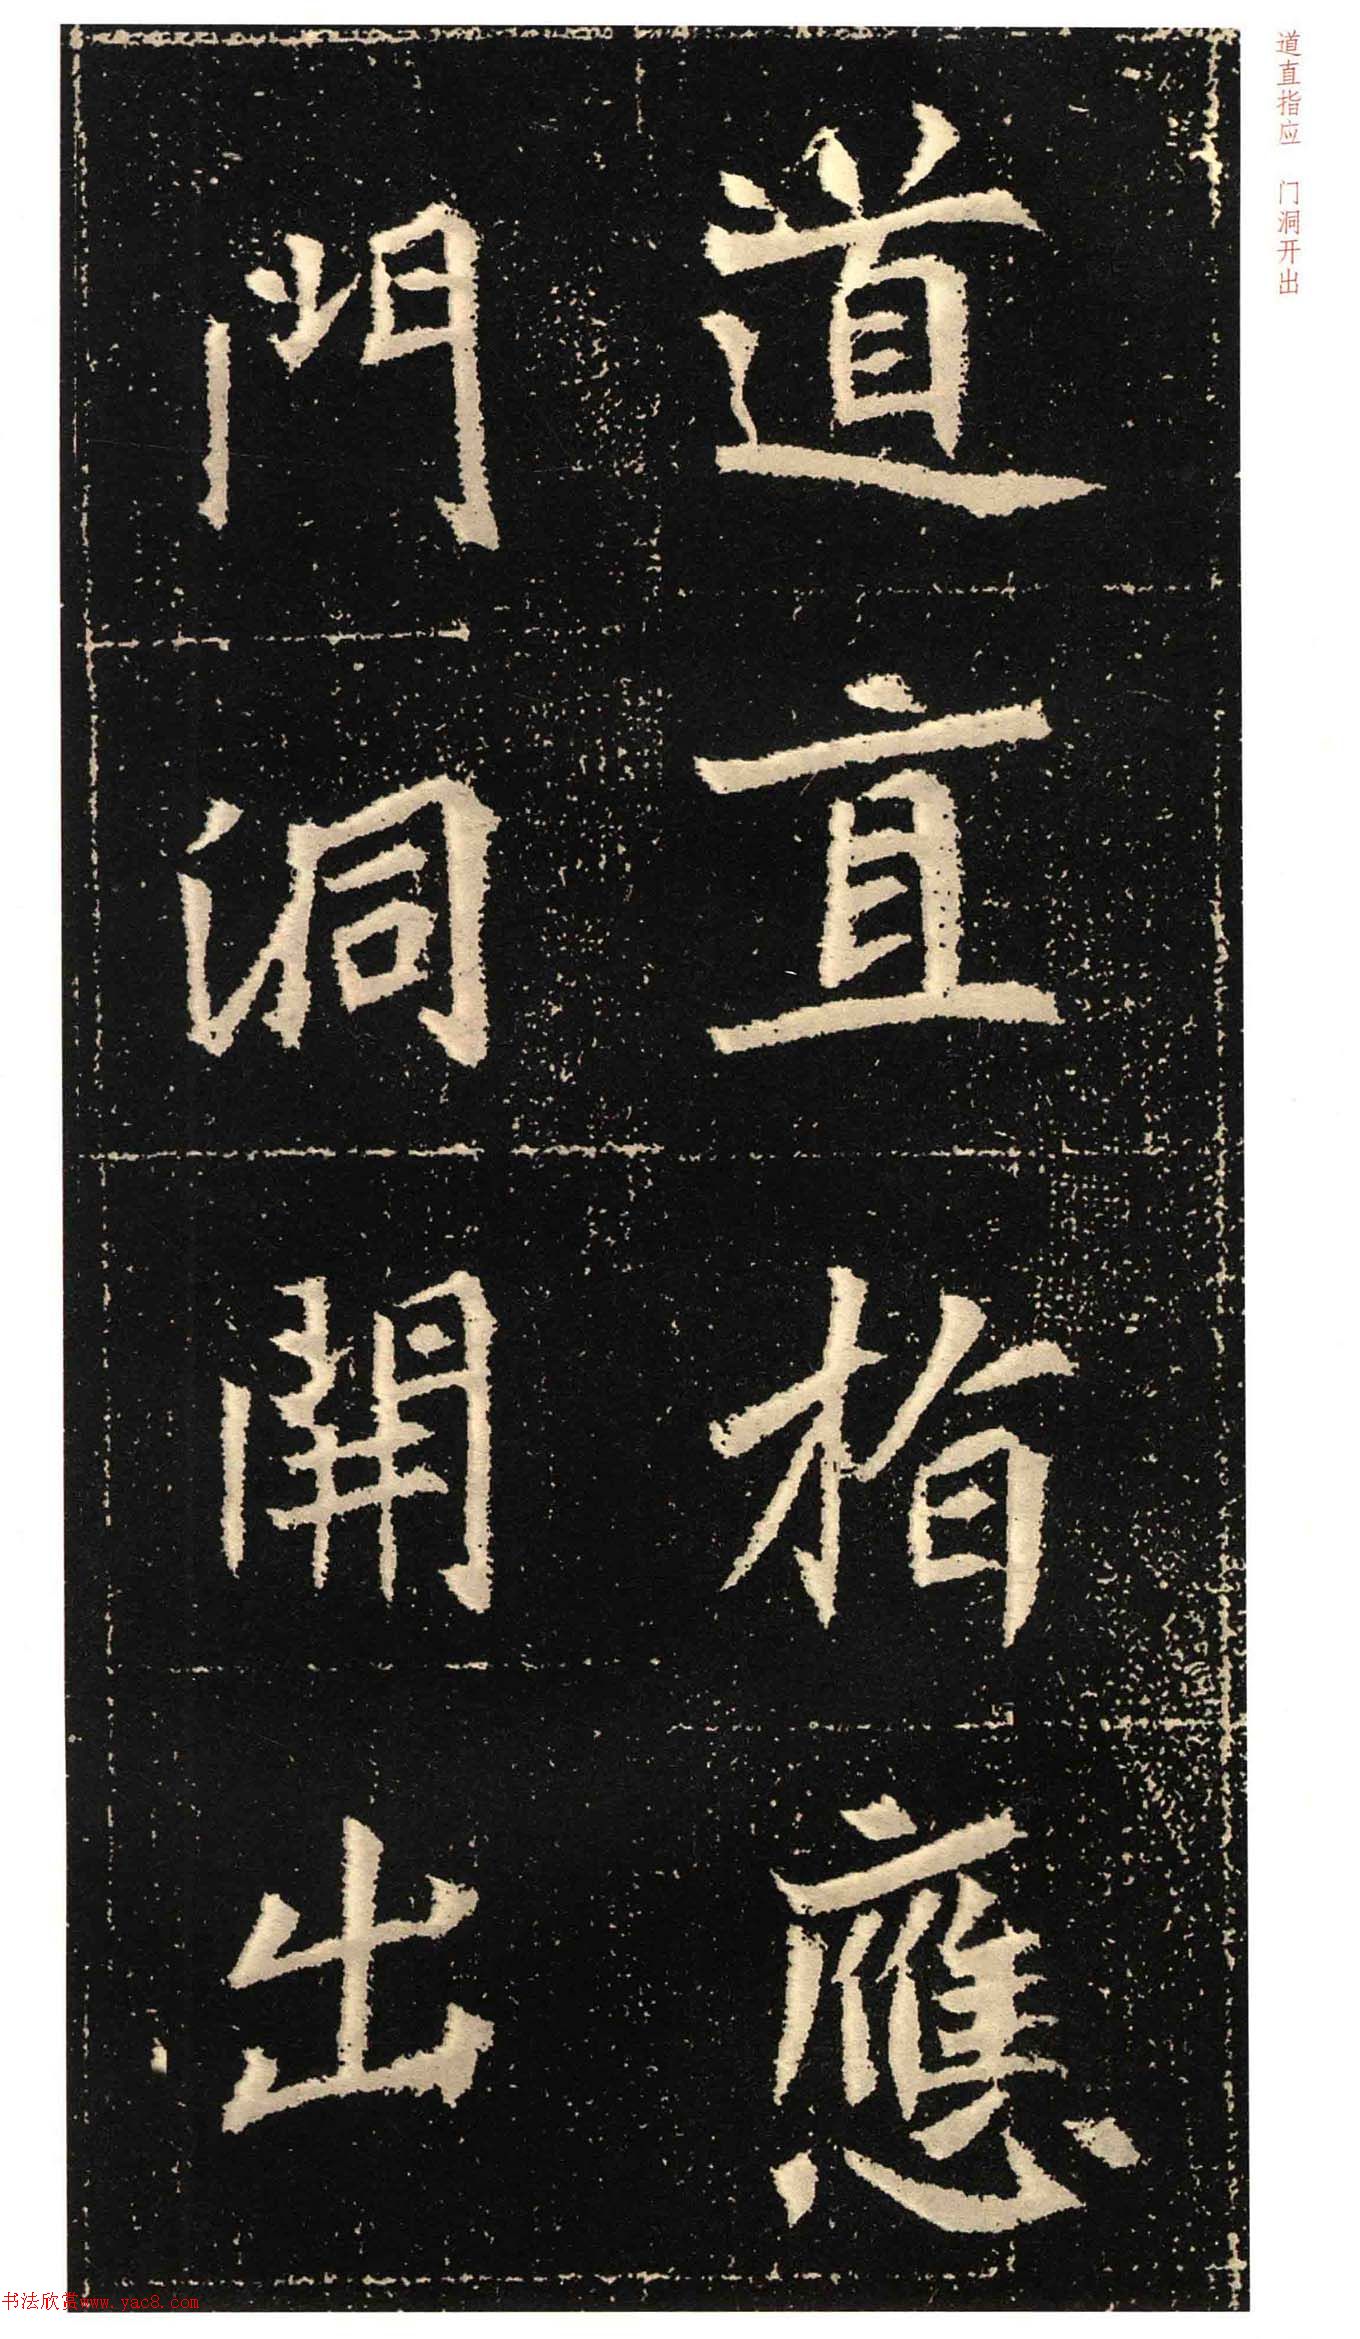 道直指應
門洞開出
道直指应 门洞开出
书法欣赏www.yac8.com